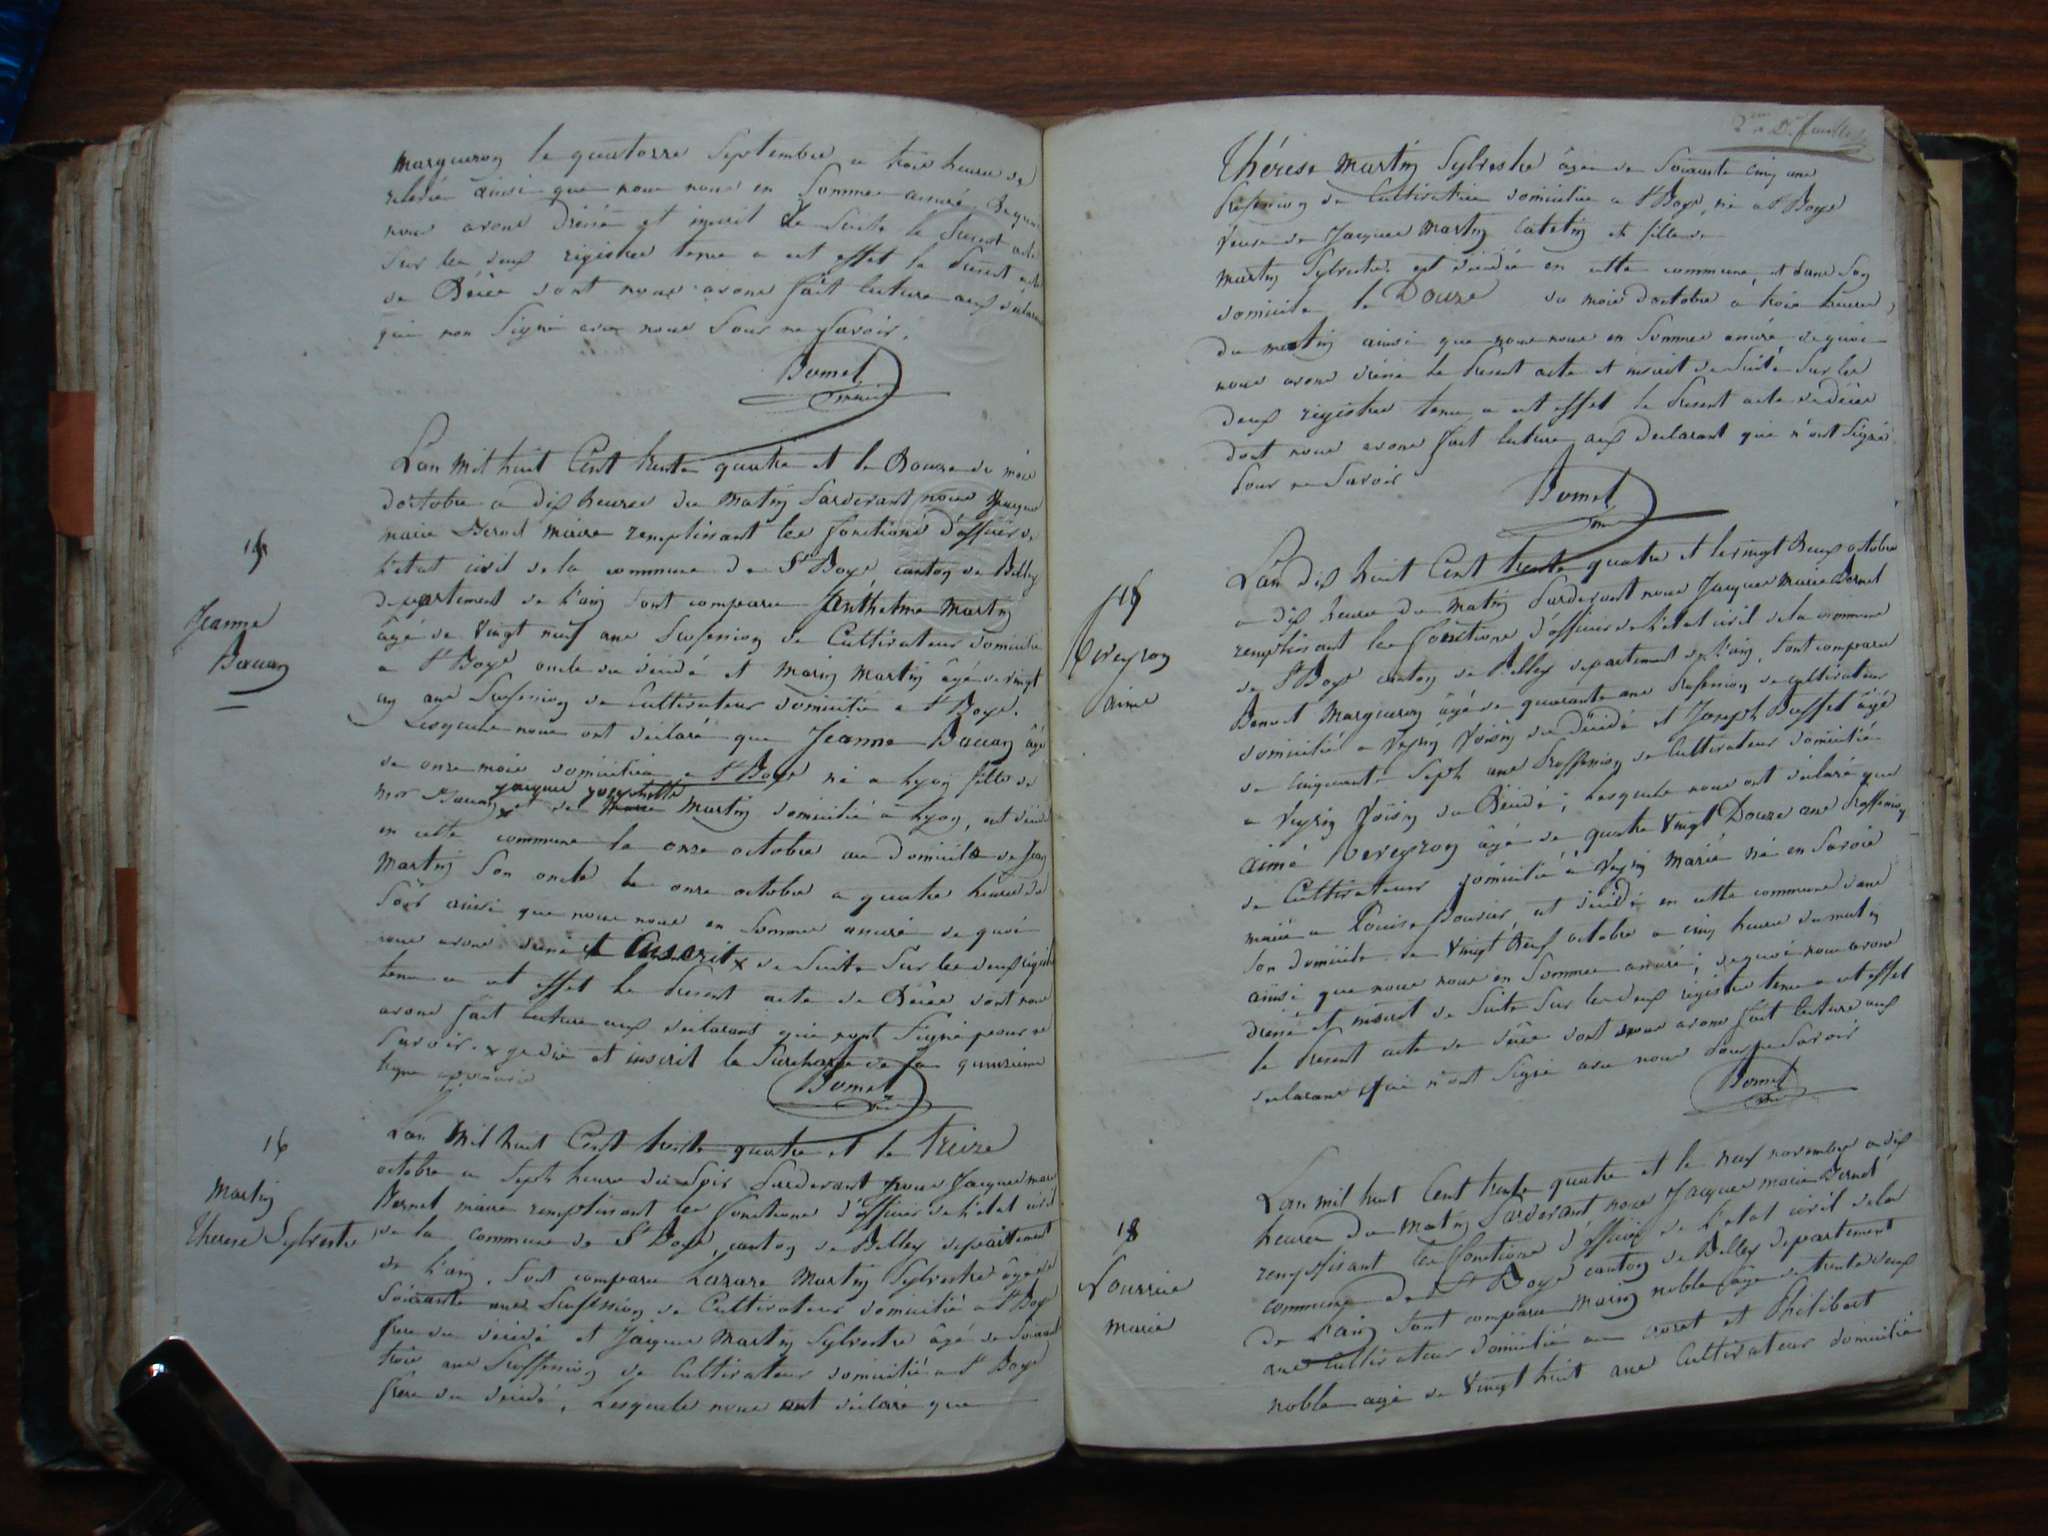 margueron le quatorze Septembre a trois heures de
relevée ainsi que nous nous en Sommes assuré. De quoi
nous avons Dréssé et inscrit de Suite le présent acte
sur les deux registres tenus a cet effet le présent acte
de Décès dont nous avons fait lecture aux déclarants
qui non Signé avec nous pour ne Savoir.
Bornet
maire
Lan mil huit Cent trente quatre et le Douze du mois
doctobre a dix heures du matin Pardevant nous Jacques
marie Bernet maire remplissant les fonctions d'officier de
l'état civil de la commune de St Boys canton de Belley
departement de l'ain Sont comparu Janthelme Martin
âgé de Vingt neuf ans profession de Cultivateur domicilié
a St Boys oncle du décédé et marin martin âgé de vingt
ans profession de Cultivateur domicilié a St Boys.
Lesquels nous ont déclaré que Jeanne Bouan âgé
de onze mois domiciliée a St Boys né a Lyon fille de
Bouan et de Marie Martin domicilié a Lyon, est décédé
en cette commune le onze octobre au domicile de Jean
Martin Son oncle le onze octobre a quatre heures du
Soir ainsi que nous nous en Sommes assuré de quoi
nous avons dréssé et inscrit x de Suite Sur les deux registres
tenu a cet effet le présent acte de Décès dont nous
avons fait lecture aux déclarants qui nont Signé pour ne
Savoir. x je dis et inscrit la Surcharge de la quinzieme
ligne approuvé
Bornet
15
Jeanne
Bouan
Lan Mil huit Cent trente quatre et le treize
octobre a Sept heures du Soir Pardevant nous Jacques marie
Bernet maire remplissant les fonctions d'officier de l'état civil
de la commune de St Boys, canton de Belley departement
de l'ain. Sont comparu Lazare Martin Sylvestre âgé de
Soixante ans profession de Cultivateur domicilié a St Boys
frère du décédé et Jacques Martin Sylvestre âgé de Soixante
trois ans proffession de Cultivateur domicilié a St Boys
frère du décédé, Lesquels nous ont déclaré que
16
Martin
Therese Sylvestre
Thérèse Martin Sylvestre âgée de Soixante cinq ans
profession de Cultivatrice domiciliée a St Boys, né a St Boys
Veuve de Jacques Martin Catelin et fille de
martin Sylvestre est décédée en cette commune, et dans Son
domicile le Douze du mois doctobre à trois heures
du matin ainsi que nous nous en Sommes assuré de quoi
nous avons dréssé le présent acte et inscrit de Suite Sur les
deux registres tenu a cet effet le présent acte de décès
dont nous avons fait lecture aux declarant qui n'ont Signé
pour ne Savoir
Bornet
L'an dix huit Cent trente quatre et le vingt Deux octobre
a dix heures du matin Pardevant nous Jacques Marie Bernet
remplissant les fonctions d'officier de l'état civil de la commune
de St Boys canton de Belley departement de l'ain, Sont comparu
Benoit Margueron âgé de quarante ans profession de cultivateur
domicilié a Veyrin Voisin du décédé et Joseph Buffet âgé
de Cinquante Sept ans proffession de Cultivateur domicilié
a Veyrin Voisin du Décédé; Lesquels nous ont déclaré que
aimé Vereyron âgé de quatre Vingt Douze ans proffession
de Cultivateur domicilié a Veyrin Marié né en Savoie
marié a Louise, est décédé en cette commune dans
Son domicile le Vingt Deux octobre a cinq heures du matin
ainsi que nous nous en Sommes assuré; de quoi nous avons
dréssé et inscrit de Suite Sur les deux registres tenu a cet effet
le présent acte de décès dont nous avons fait lecture aux
declarans qui n'ont Signé avec nous pour ne Savoir
Bornet
Vereyron
aimé
Lan mil huit Cent trente quatre et le neuf novembre a dix
heures du matin Pardevant nous Jacques marie Bernet
remplissant les fonctions d'officier de l'état civil de la
commune de St Boys canton de Belley departement
de l'ain Sont comparu Marin noble âgé de trente deux
ans Cultivateur domicilié au et Philibert
noble agé de Vingt huit ans Cultivateur domicilié
18
Nourrice
marie